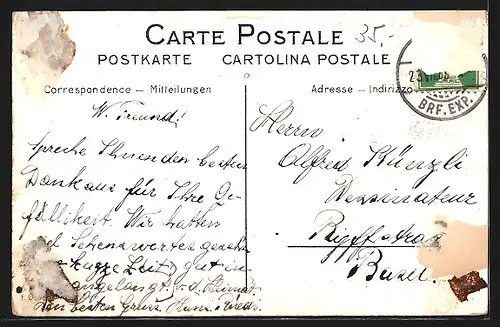 CARTE POSTALE
35.-
POSTKARTE CARTOLINA POSTALE
Correspondence – Mitteilungen
Adresse – Indirizzo
BRF. EXP.
W. Freund!
spreche Ihnen den besten
Dank aus für Ihre Ge-
fälligkeit. Wir hatten
Sehenswertes gesehn
kurze Zeit gut in
angelangt
den besten Gruss Hans
Herrn
Alfred Künzli
Dessinateur
Basel.